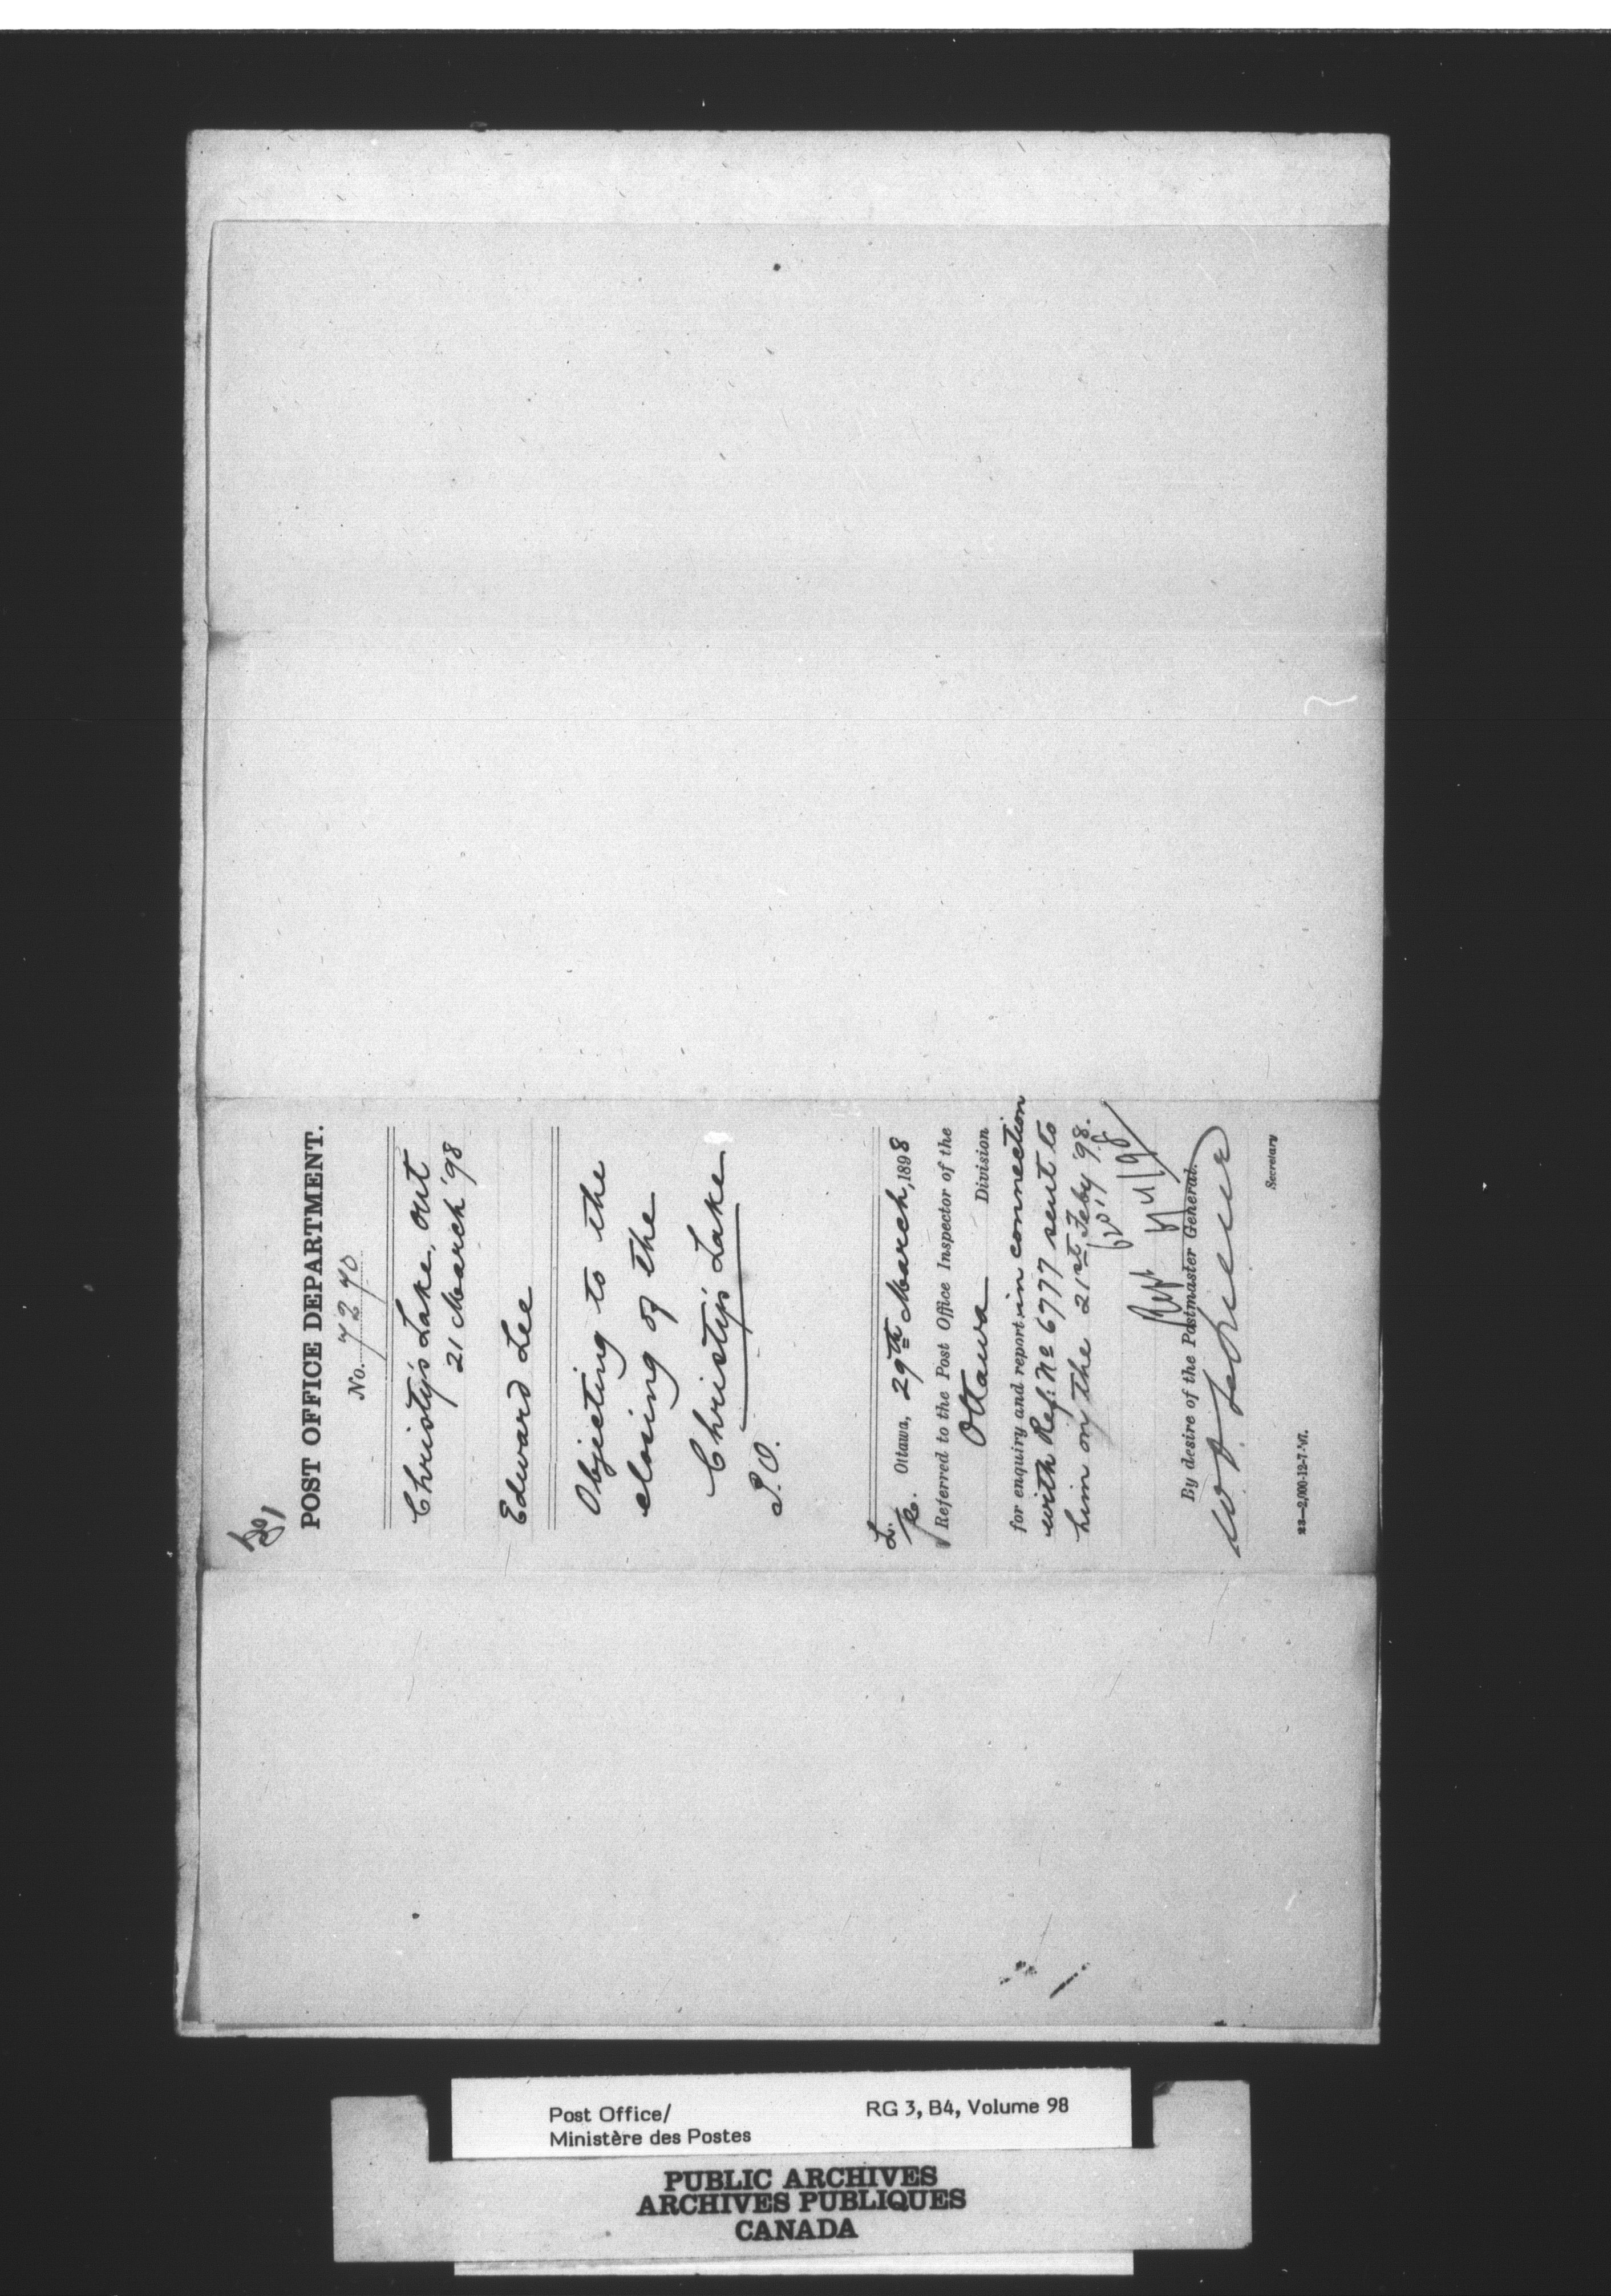 POST OFFICE DEPARTMENT.
No. 7270
Christy's Lake, Ont
21 March '98
Edward Lee
Objecting to the
closing of the
Christy's Lake
P.O.
Ottawa, 29th March, 1898
Referred to the Post Office Inspector of the
Ottawa Division
for enquiry and report in connection
with Ref: No 6777 sent to
him on the 21st Feby '98.
By desire of the Postmaster General.
Secretary
Post Office/
Ministère des Postes
RG 3, B4, Volume 98
PUBLIC ARCHIVES
ARCHIVES PUBLIQUES
CANADA